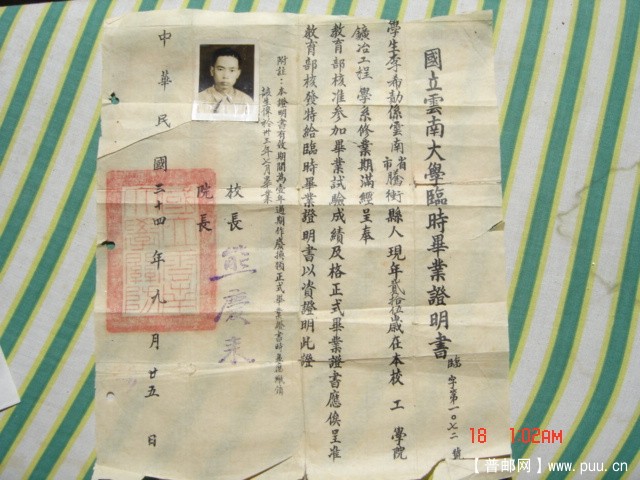 國立雲南大學臨時畢業證明書
臨字第一〇七二號
學生李希勣係雲南省市騰衝縣人現年貳拾伍歲在本校工學院
鑛冶工程學系修業期滿經呈奉
教育部核准參加畢業試驗成績及格正式畢業證書應俟呈准
教育部核發特給臨時畢業證明書以資證明此證
附註：本證明書有效期間為壹年逾期作廢換領正式畢業證書時並應繳銷
該生係於卅三年七月畢業
校長
院長
熊慶來
中華民國三十四年九月廿五日
18 1:02AM
【普邮网】www.puu.cn